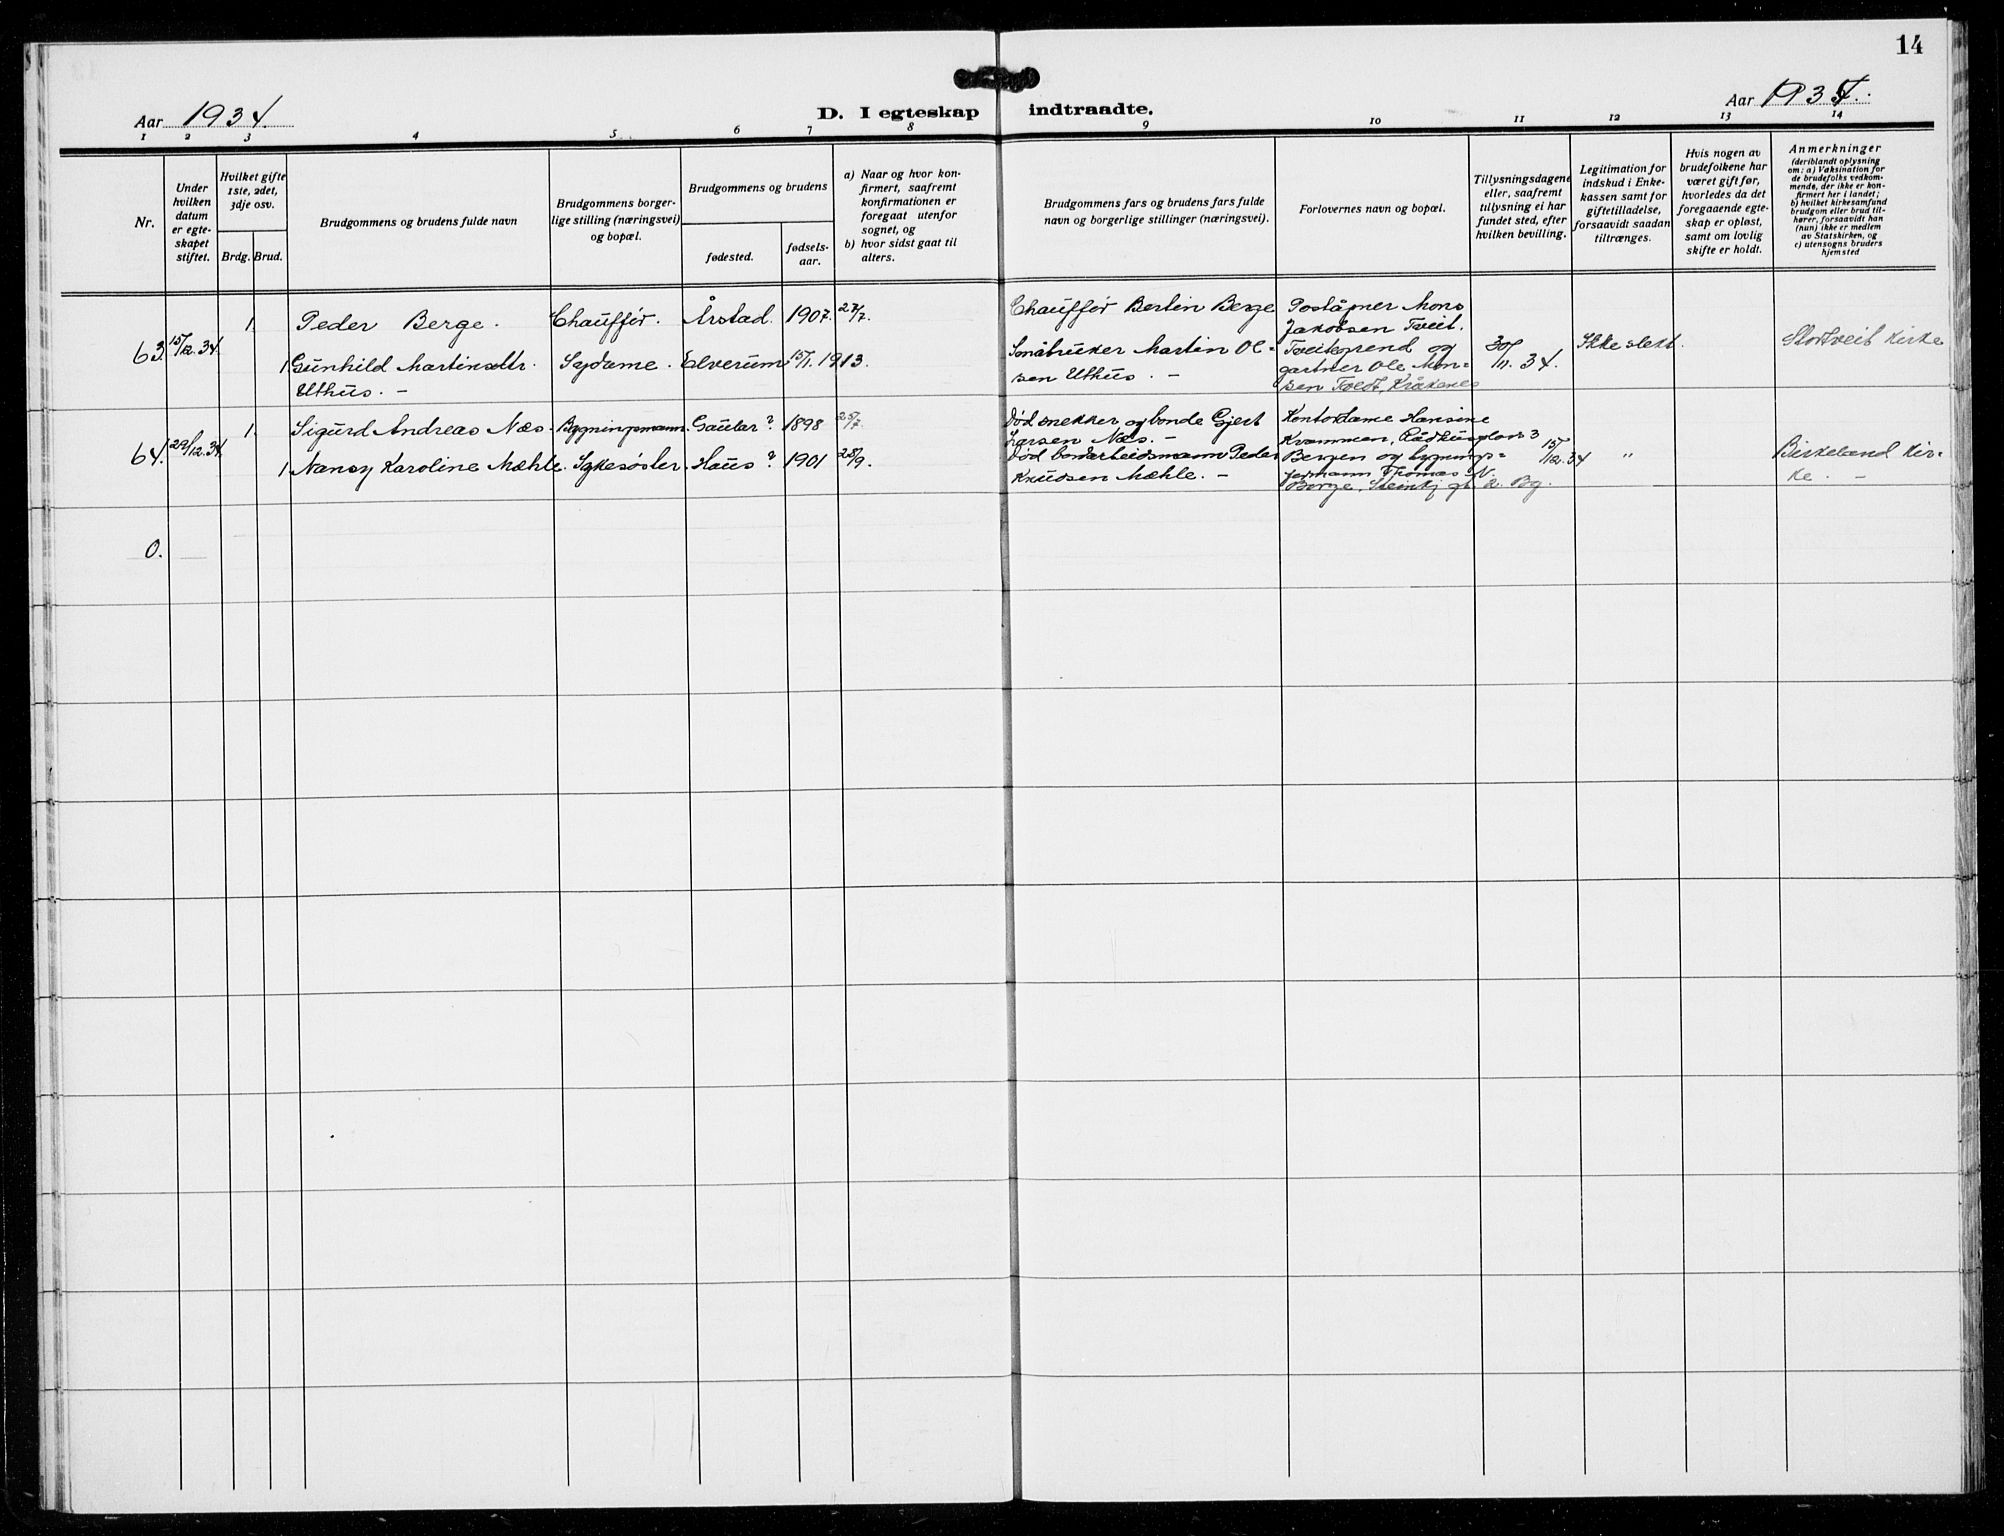 14
Aar 1934.
D. I egteskap indtraadte.
Aar 1934.
1 2 3 4 5 6 7 8 9 10 11 12 13 14
Nr.
Under hvilken datum er egteskapet stiftet.
Hvilket gifte 1ste, 2det, 3dje osv.
Brdg. Brud.
Brudgommens og brudens fulde navn
Brudgommens borgerlige stilling (næringsvei) og bopæl.
Brudgommens og brudens
fødested.
fødsels-aar.
a) Naar og hvor konfirmert, saafremt konfirmationen er foregaat utenfor sognet, og
b) hvor sidst gaat til alters.
Brudgommens fars og brudens fars fulde navn og borgerlige stillinger (næringsvei).
Forlovernes navn og bopæl.
Tillysningsdagene eller, saafremt tillysning ei har fundet sted, efter hvilken bevilling.
Legitimation for indskud i Enkekassen samt for giftetilladelse, forsaavidt saadan tiltrænges.
Hvis nogen av brudefolkene har været gift før, hvorledes da det foregaaende egteskap er opløst, samt om lovlig skifte er holdt.
Anmerkninger
(deriblandt oplysning om: a) Vaksination for de brudefolks vedkommende, der ikke er konfirmert her i landet; b) hvilket kirkesamfund brudgom eller brud tilhører, forsaavidt han (hun) ikke er medlem av Statskirken, og c) utensogns bruders hjemsted
63. 15/12.34. 1. Peder Berge. Chauffør. Årstad. 1907. 27/7. Chauffør Bertin Berge Poståpner Mons
Jakobsen Tveit.
1 Gunhild Martinsdtr. Sydame. Elverum 15/1.1913. Småbruker Martin Ol= Tveitegrend og 30/11.34. Ikke slekt. Storetveit kirke
Uthus. — sen Uthus. — gartner Ole Mon=
sen Tveit, Kråkenes
64. 29/12.34. 1. Sigurd Andreas Næs. Bygningsmann. Gaular ? 1898 25/7. Død snekker og bonde Gjert Kontordame Hansine
Larsen Næs. — Kvammen, Rådhusplass 3
1 Nancy Karoline Mæhle. Sykesøster. Haus ? 1901 28/9. Død bordarbeidsmann Peder Bergen og bygnings= 15/12.34 " Birkeland kir=
Knudsen Mæhle. — formann Thomas N. ke. —
Berge, Steinkj. gt. 2. Bg.
0. —